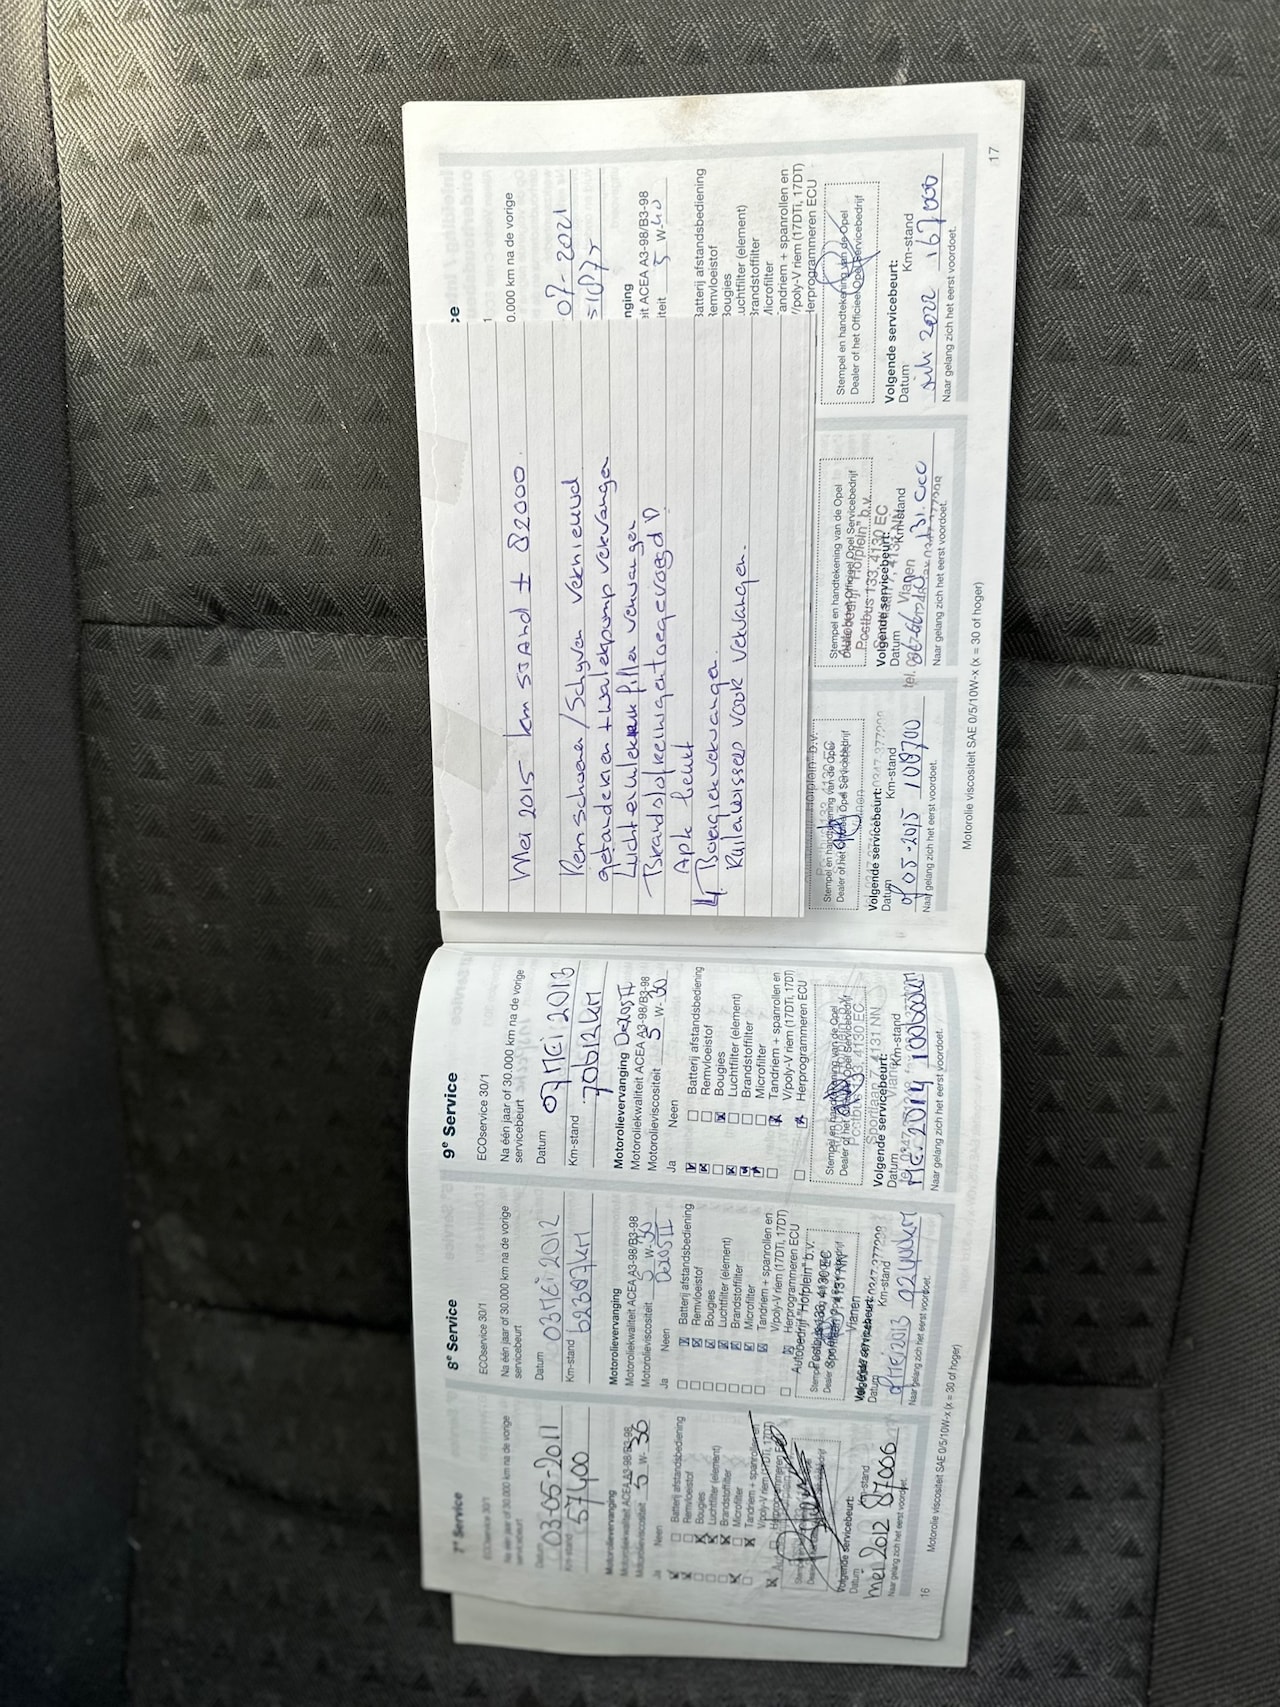 7e Service
ECOservice 30/1
Na één jaar of 30.000 km na de vorige
servicebeurt
Datum 03-05-2011
Km-stand 57400
Motorolievervanging
Motoroliekwaliteit ACEA A3-98/B3-98
Motorolieviscositeit 5 W- 30
Ja Neen
Batterij afstandsbediening
Remvloeistof
Bougies
Luchtfilter (element)
Brandstoffilter
Microfilter
Tandriem + spanrollen en
V/poly-V riem (17DTi, 17DT)
Herprogrammeren ECU
Volgende servicebeurt:
Datum Km-stand
mei 2012 87000
Naar gelang zich het eerst voordoet.
8e Service
ECOservice 30/1
Na één jaar of 30.000 km na de vorige
servicebeurt
Datum 03 MEi 2012
Km-stand 62387KM
Motorolievervanging
Motoroliekwaliteit ACEA A3-98/B3-98
Motorolieviscositeit 5 W- 30
Ja Neen Dexos II
Batterij afstandsbediening
Remvloeistof
Bougies
Luchtfilter (element)
Brandstoffilter
Microfilter
Tandriem + spanrollen en
V/poly-V riem (17DTi, 17DT)
Herprogrammeren ECU
Autobedrijf "Hofplein" b.v.
Postbus 133, 4130 EC
Sportlaan 7, 4131 NN
Vianen
Volgende servicebeurt:
Datum Km-stand
MEI 2013
Naar gelang zich het eerst voordoet.
9e Service
ECOservice 30/1
Na één jaar of 30.000 km na de vorige
servicebeurt
Datum 07 MEi 2013
Km-stand 70612KM
Motorolievervanging Dexos II
Motoroliekwaliteit ACEA A3-98/B3-98
Motorolieviscositeit 5 W- 30
Ja Neen
Batterij afstandsbediening
Remvloeistof
Bougies
Luchtfilter (element)
Brandstoffilter
Microfilter
Tandriem + spanrollen en
V/poly-V riem (17DTi, 17DT)
Herprogrammeren ECU
Stempel en handtekening van de Opel
Dealer of het Officieel Opel Servicebedrijf
Postbus 133, 4130 EC
Sportlaan 7, 4131 NN
Volgende servicebeurt:
Datum Km-stand
MEI 2014 100600KM
Naar gelang zich het eerst voordoet.
16
Motorolie viscositeit SAE 0/5/10W-x (x = 30 of hoger)
Mei 2015 km stand ± 82000.
Remschoenen/Schyven vernieuwd
getande rien + waterpomp vervangen
Lucht en interieur filter vervangen
Brandstofreinigen toegevoegd
Apk keurt
4 Bougies vervangen.
Ruitewissers voor vervangen.
Stempel en handtekening van de Opel
Dealer of het Officieel Opel Servicebedrijf
Volgende servicebeurt:
Datum Km-stand
05-2015 108700
Naar gelang zich het eerst voordoet.
Stempel en handtekening van de Opel
Dealer of het Officieel Opel Servicebedrijf
Autobedrijf "Hofplein" b.v.
Postbus 133, 4130 EC
Sportlaan 7, 4131 NN
Vianen
Volgende servicebeurt:
Datum Km-stand
Naar gelang zich het eerst voordoet.
0.000 km na de vorige
07-2021
ging
it ACEA A3-98/B3-98
iteit 5 W-40
Batterij afstandsbediening
Remvloeistof
Bougies
Luchtfilter (element)
Brandstoffilter
Microfilter
Tandriem + spanrollen en
V/poly-V riem (17DTi, 17DT)
Herprogrammeren ECU
Stempel en handtekening van de Opel
Dealer of het Officieel Opel Servicebedrijf
Volgende servicebeurt:
Datum Km-stand
juli 2022 167000
Naar gelang zich het eerst voordoet.
Motorolie viscositeit SAE 0/5/10W-x (x = 30 of hoger)
17